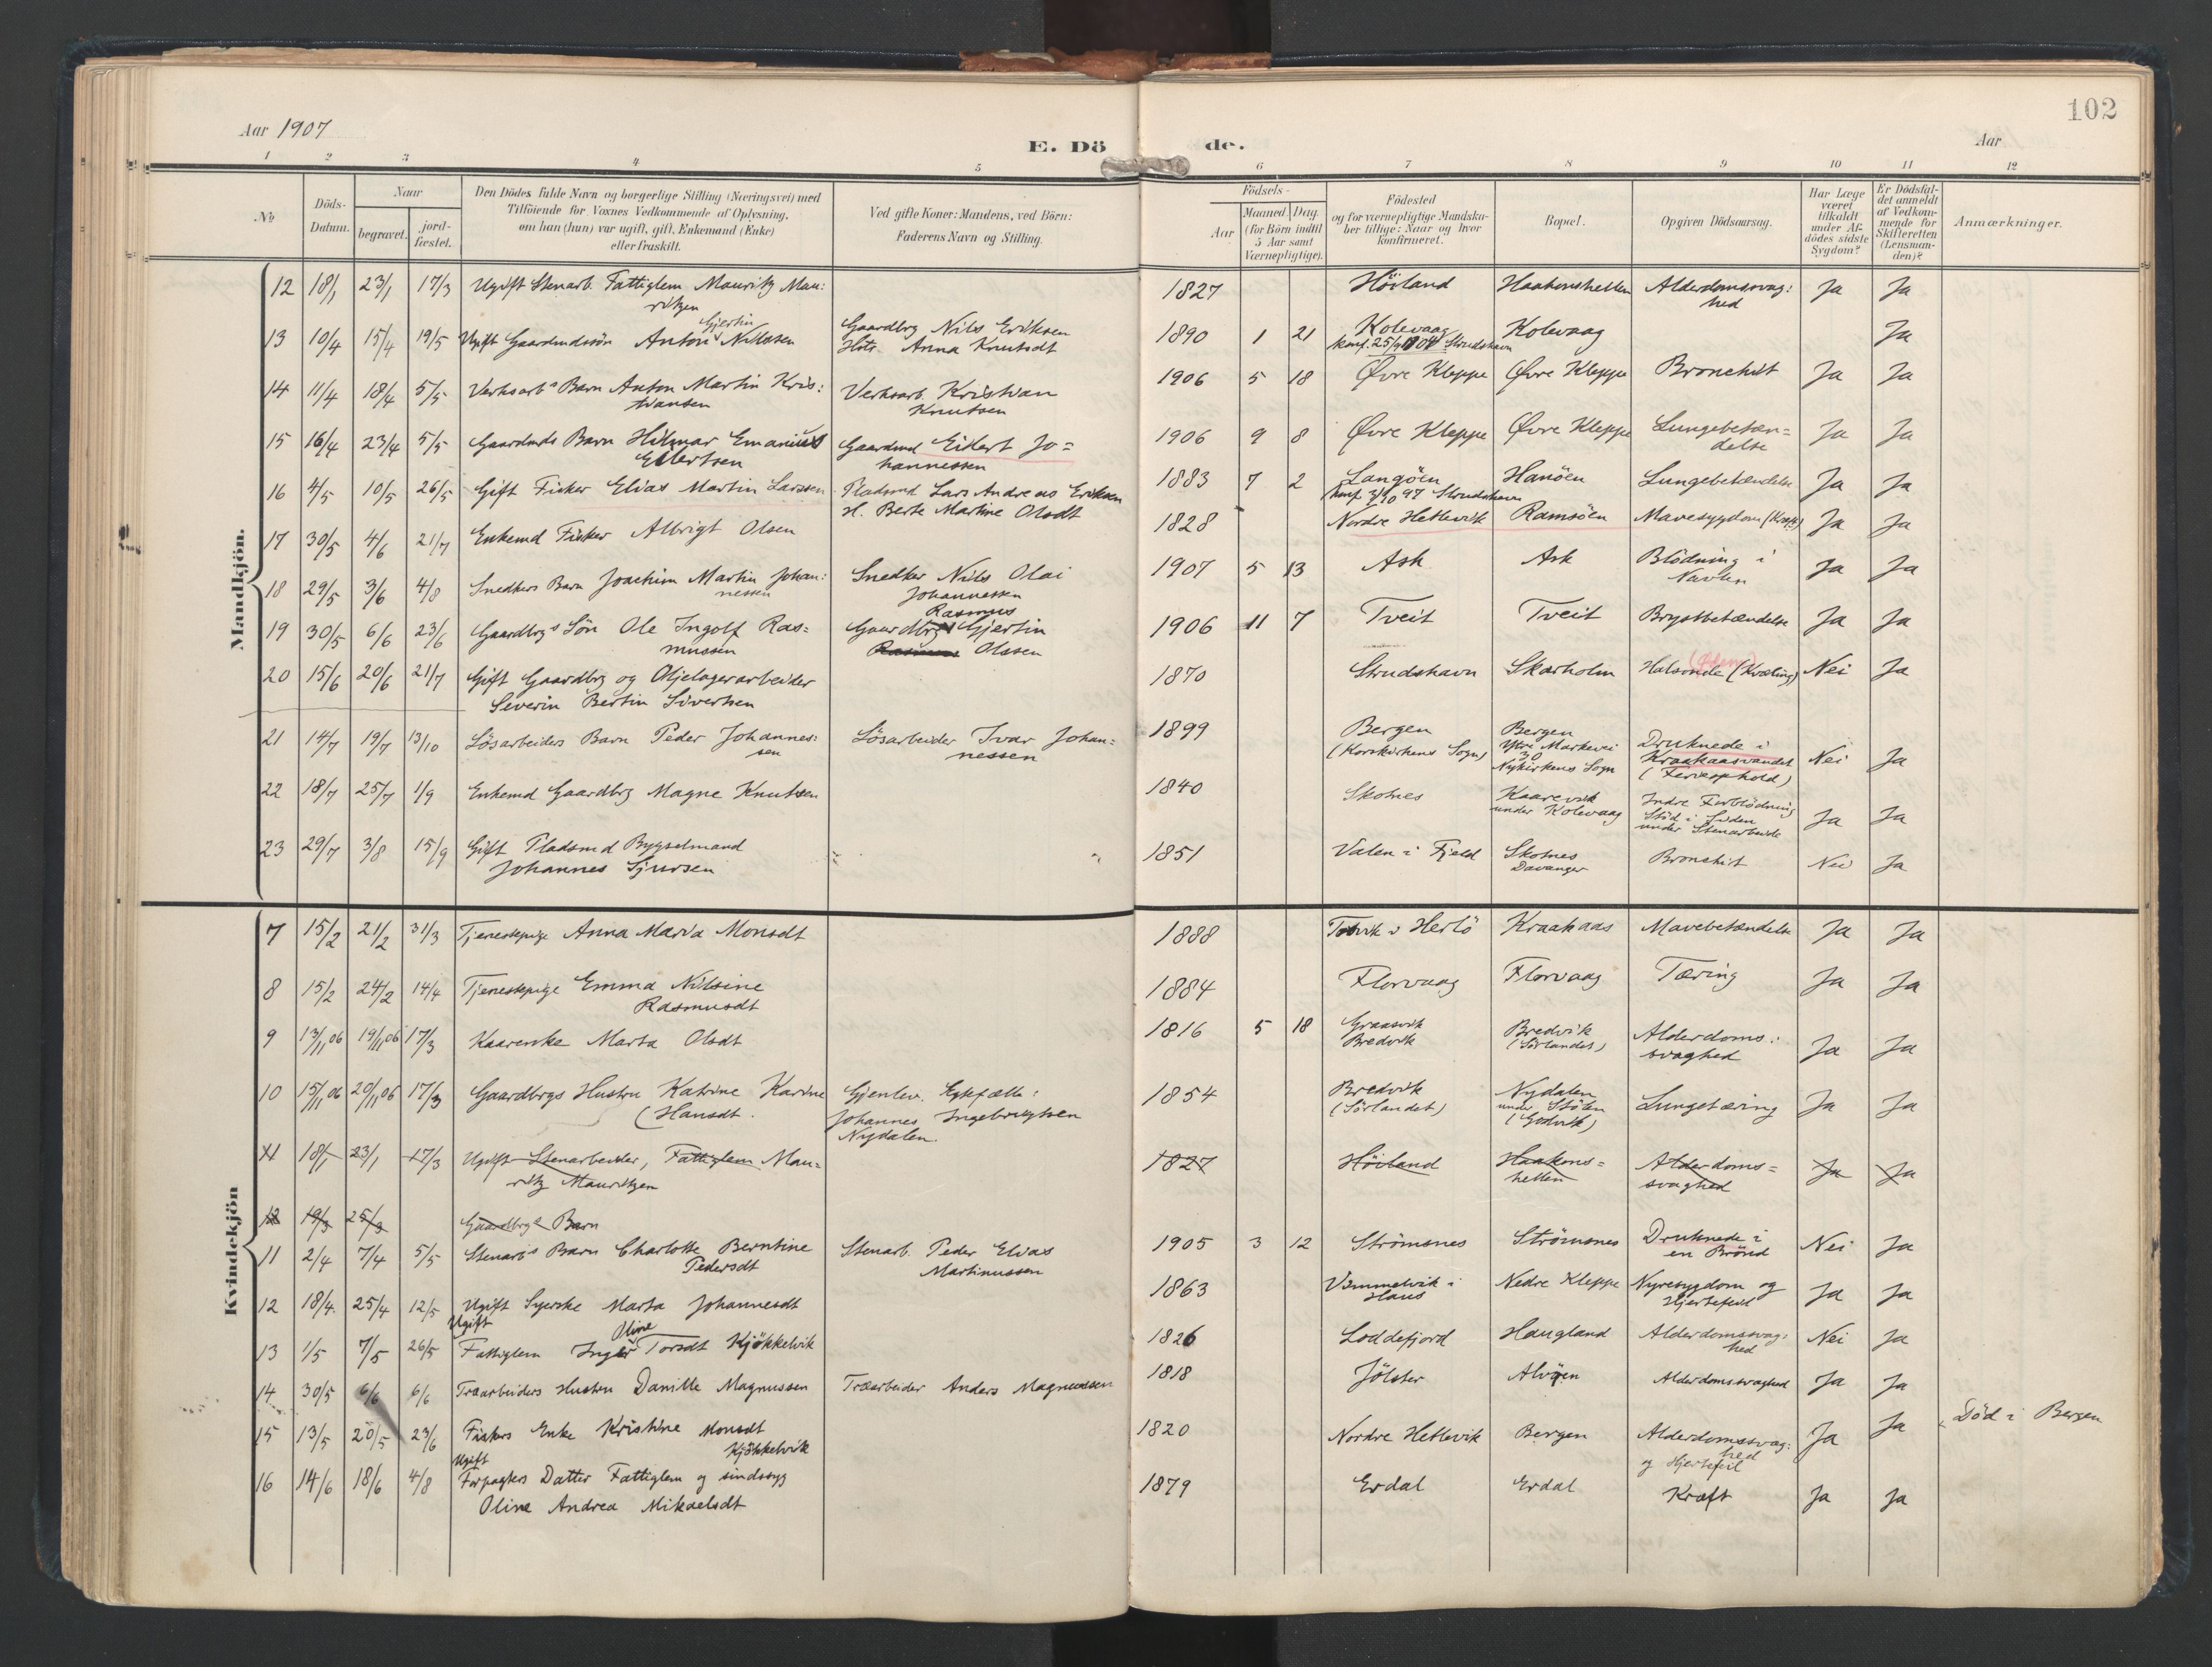 102
Aar 1907
E. Dö de.
Aar
1 2 3 4 5 6 7 8 9 10 11 12
№
Döds-Datum.
Naar
begravet.
jord-fæstet.
Den Dödes fulde Navn og borgerlige Stilling (Næringsvei) med
Tilföiende for Voxnes Vedkommende af Oplysning,
om han (hun) var ugift, gift, Enkemand (Enke)
eller fraskilt.
Ved gifte Koner: Mandens, ved Börn:
Faderens Navn og Stilling.
Födsels-
Aar
Maaned. Dag.
(for Börn indtil
5 Aar samt
Værnepligtige).
Födested
og for værnepligtige Mandska-
ber tillige: Naar og hvor
konfirmeret.
Bopæl.
Opgiven Dödsaarsag.
Har Læge
været
tilkaldt
under Af-
dödes sidste
Sygdom?
Er Dödsfal-
det anmeldt
af Vedkom-
mende for
Skifteretten
(Lensman-
den)?
Anmærkninger.
Mandkjön.
12 18/1 23/1 17/3 Ugift Stenarb. Fattiglem Mauritz Mau: 1827 Höiland Haakonshellen Alderdomssvag: Ja Ja
ritzen hed
Gjertin
13 10/4 15/4 19/5 Ugift Gaardmdssön Anton Nilssen Gaardbrg Nils Eriksen 1890 1 21 Kolevaag Kolevaag Ja
Hstr. Anna Knutsdt konf. 25/9 1904 Strudshavn
14 11/4 18/4 5/5 Verksarbs Barn Anton Martin Kris: Verksarb. Kristian 1906 5 18 Øvre Kleppe Øvre Kleppe Bronchit Ja Ja
tiansen Knutsen
15 16/4 23/4 5/5 Gaardmds Barn Hilmar Emanius Gaardmd Eilert Jo= 1906 9 8 Øvre Kleppe Øvre Kleppe Lungebetæn= Ja Ja
Eilertsen hannessen delse
16 4/5 10/5 26/5 Gift Fisker Elias Martin Larssen Pladsmd Lars Andreas Eriksen 1883 7 2 Langöen Hanöen Lungebetændelse Ja Ja
H. Berte Martine Olsdt konf. 3/10 97 Strudshavn
17 30/5 4/6 21/7 Enkemd Fisker Albrigt Olsen 1828 Nordre Hetlevik Ramsöen Mavesygdom (Kræft) Ja Ja
18 29/5 3/6 4/8 Snedkers Barn Joachim Martin Johan: Snedker Nils Olai 1907 5 13 Ask Ask Blödning i Ja Ja
nessen Johannessen Navlen
Rasmus
19 30/5 6/6 23/6 Gaardbrgs Sön Ole Ingolf Ras= Gaardbrg Gjertin 1906 11 7 Tveit Tveit Brystbetændelse Ja Ja
mussen Rasmus Olssen
20 15/6 20/6 21/7 Gift Gaardbrg og Oljelagerarbeider 1870 Strudshavn Skarholm Halsonde (Kvæling) Nei Ja
Severin Bertin Sivertsen
21 14/7 19/7 13/10 Lösarbeiders Barn Peder Johannes: Lösarbeider Ivar Johan= 1899 Bergen Bergen Druknede i Nei Ja
sen nessen (Korskirkens Sogn) Ytre Markevei Kraakaasvandet
30 (Ferieophold)
Nykirkens Sogn
22 18/7 25/7 1/9 Enkemd Gaardbrg Magne Knutsen 1840 Skotnes Kaarevik Indre Forblödning Ja Ja
under Kolevaag Stöd i Siden
under Stenarbeide
23 29/7 3/8 15/9 Gift Pladsmd Bygselmand 1851 Valen i Fjeld Skotnes Bronchit Nei Ja
Johannes Sjursen Davanger
Kvindekjön
7 15/2 21/2 31/3 Tjenestepige Anna Maria Monsdt 1888 Herlö Kraakaas Mavebetændelse Ja Ja
8 15/2 24/2 14/4 Tjenestepige Emma Nilsine 1884 Florvaag Florvaag Tæring Ja Ja
Rasmusdt
9 13/11 06 19/11 06 17/3 Kaarenke Marta Olsdt 1816 5 18 Graasvik Bredvik Alderdoms: Ja Ja
Bredvik (Sörlandet) svaghed
10 15/11 06 20/11 06 17/3 Gaardbrgs Hustru Katrine Karine Gjenlev. Egtefælle: 1854 Bredvik Nydalen Lungetæring Ja Ja
(Hansdt. Johannes Ingebrigtsen (Sörlandet) under Stölen
Nydalen. (Godvik)
11 18/1 23/1 17/3 Ugift Stenarbeider, Fattiglem Mau= 1827 Höiland Haakons= Alderdoms= Ja Ja
ritz Mauritzen hellen svaghed
12 19/3 25/3 Gaardbrgs Barn
11 2/4 7/4 5/5 Stenarbs Barn Charlotte Berntine Stenarb. Peder Elias 1905 3 12 Strömsnes Strömsnes Druknede i Nei Ja
Pedersdt Martinussen en Brönd
12 18/4 25/4 12/5 Ugift Syerske Marta Johannesdt 1863 Vimmelvik i Nedre Kleppe Nyresygdom og Ja Ja
Haus Hjertefeil
Ugift Oline
13 1/5 7/5 26/5 Fattiglem Inger Torsdt Kjökkelvik 1826 Loddefjord Haugland Alderdomssvag: Nei Ja
hed
14 30/5 6/6 6/6 Træarbeiders Hustru Danille Magnussen Træarbeider Anders Magnussen 1818 Jölster Alvöen Alderdomssvaghed Ja Ja
15 13/5 20/5 23/6 Fiskers Enke Kristine Monsdt 1820 Nordre Hetlevik Bergen Alderdomssvag: Ja Ja Död i Bergen
Kjökkelvik hed
og Hjertefeil
Ugift
16 14/6 18/6 4/8 Forpagters Datter Fattiglem og sindssyg 1879 Erdal Erdal Kræft Ja Ja
Oline Andrea Mikaelsdt